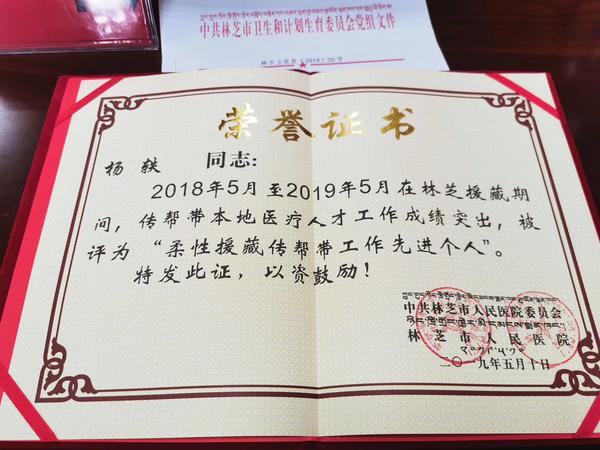 中共林芝市卫生和计划生育委员会党组文件
荣誉证书
杨轶 同志:
2018年5月至2019年5月在林芝援藏期
间，传帮带本地医疗人才工作成绩突出，被
评为“柔性援藏传帮带工作先进个人”。
特发此证，以资鼓励！
中共林芝市人民医院委员会
林芝市人民医院
二〇一九年五月十日